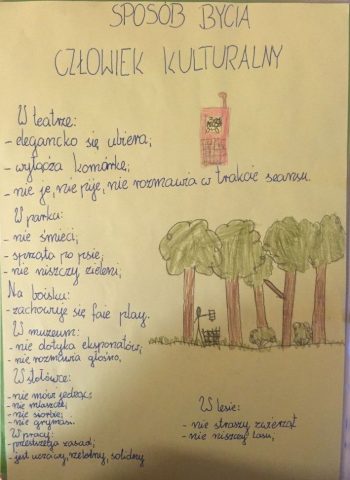 SPOSÓB BYCIA
CZŁOWIEK KULTURALNY
W teatrze:
- elegancko się ubiera;
- wyłącza komórkę;
- nie je, nie pije, nie rozmawia w trakcie seansu.
W parku:
- nie śmieci;
- sprząta po psie;
- nie niszczy zieleni;
Na boisku:
- zachowuje się faie play.
W muzeum:
- nie dotyka eksponatów;
- nie rozmawia głośno,
W stołówce:
- nie mówi jedząc;
- nie mlaszcze;
- nie siorbie;
- nie grymasi.
W pracy:
- przestrzega zasad;
- jest uczciwy, rzetelny, solidny
W lesie:
- nie straszy zwierząt
- nie niszczy lasu;